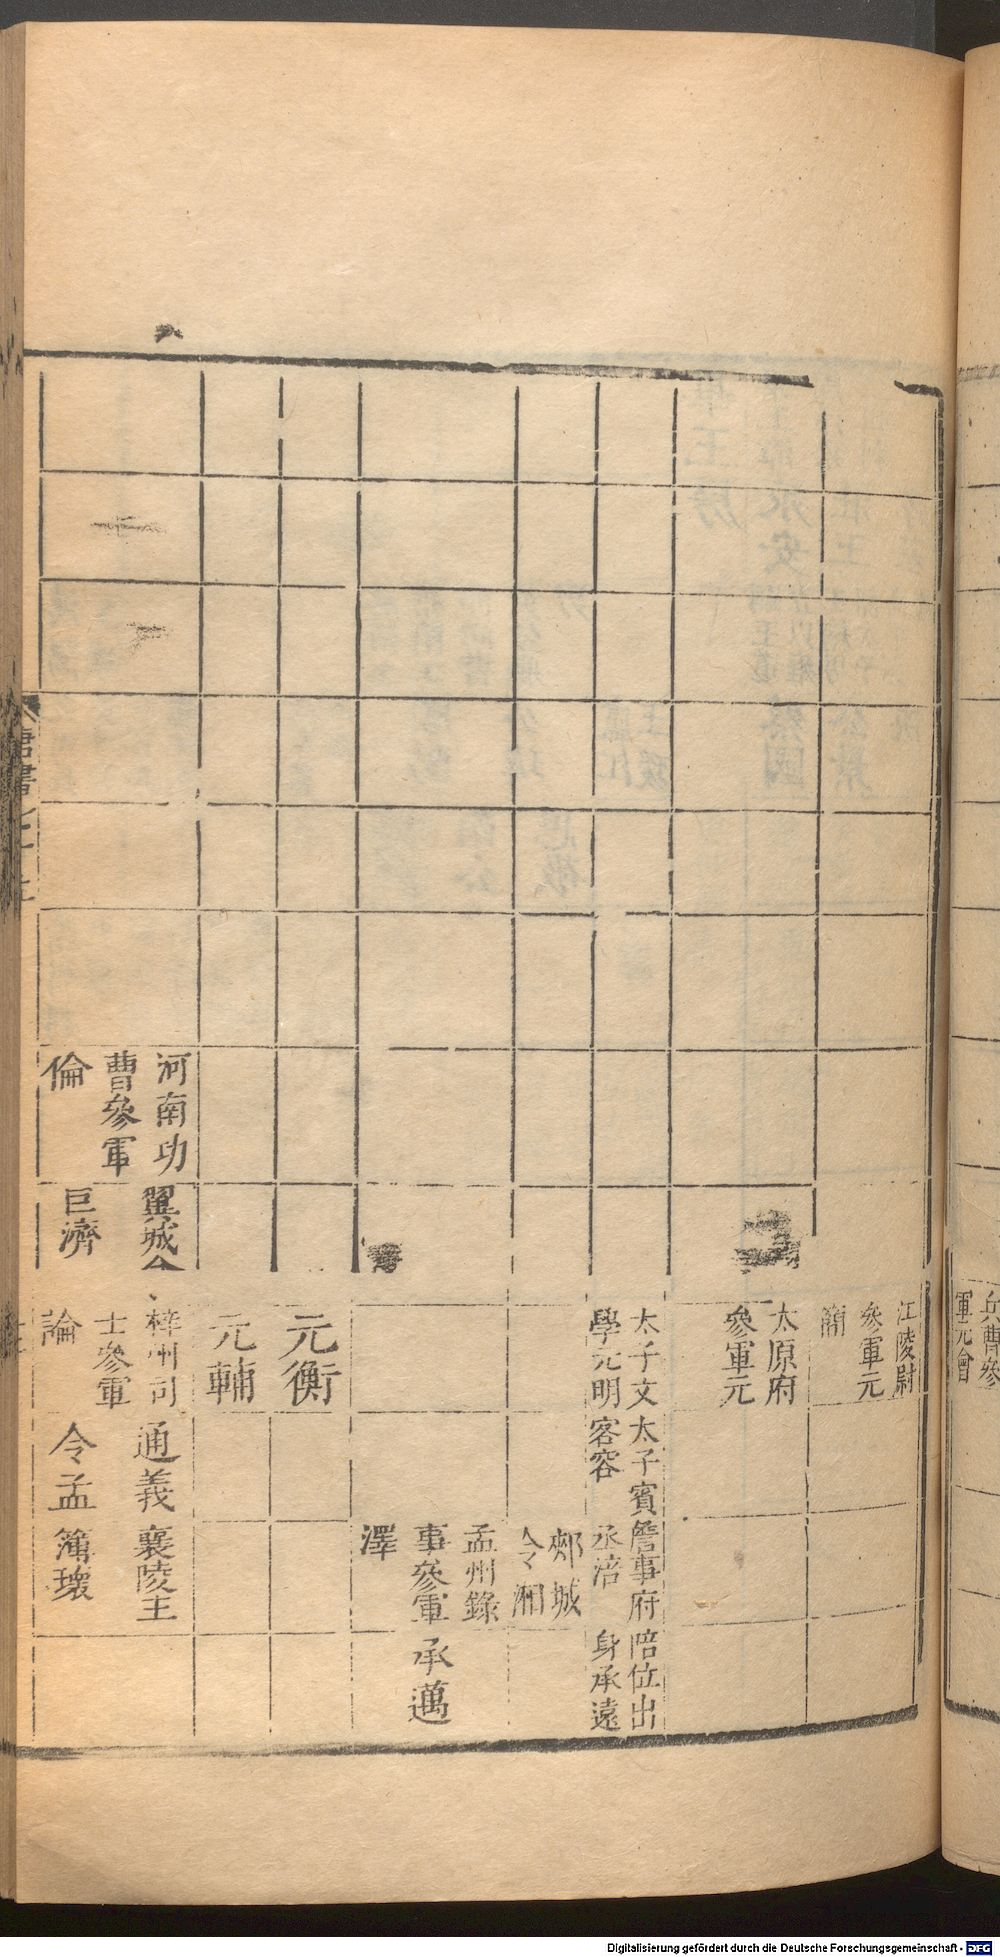 江陵尉
參軍元
簡
太原府
參軍元
太子文
學元明
太子賓
客容
詹事府
丞涪
陪位出
身承遠
郟城
令湘
孟州錄
事參軍
澤
承邁
元衡
元輔
河南功
曹參軍
倫
翼城令
巨濟
梓州司
士參軍
論
通義
令孟
襄陵主
簿瓌
兵曹參
軍元會
Digitalisierung gefördert durch die Deutsche Forschungsgemeinschaft - DFG